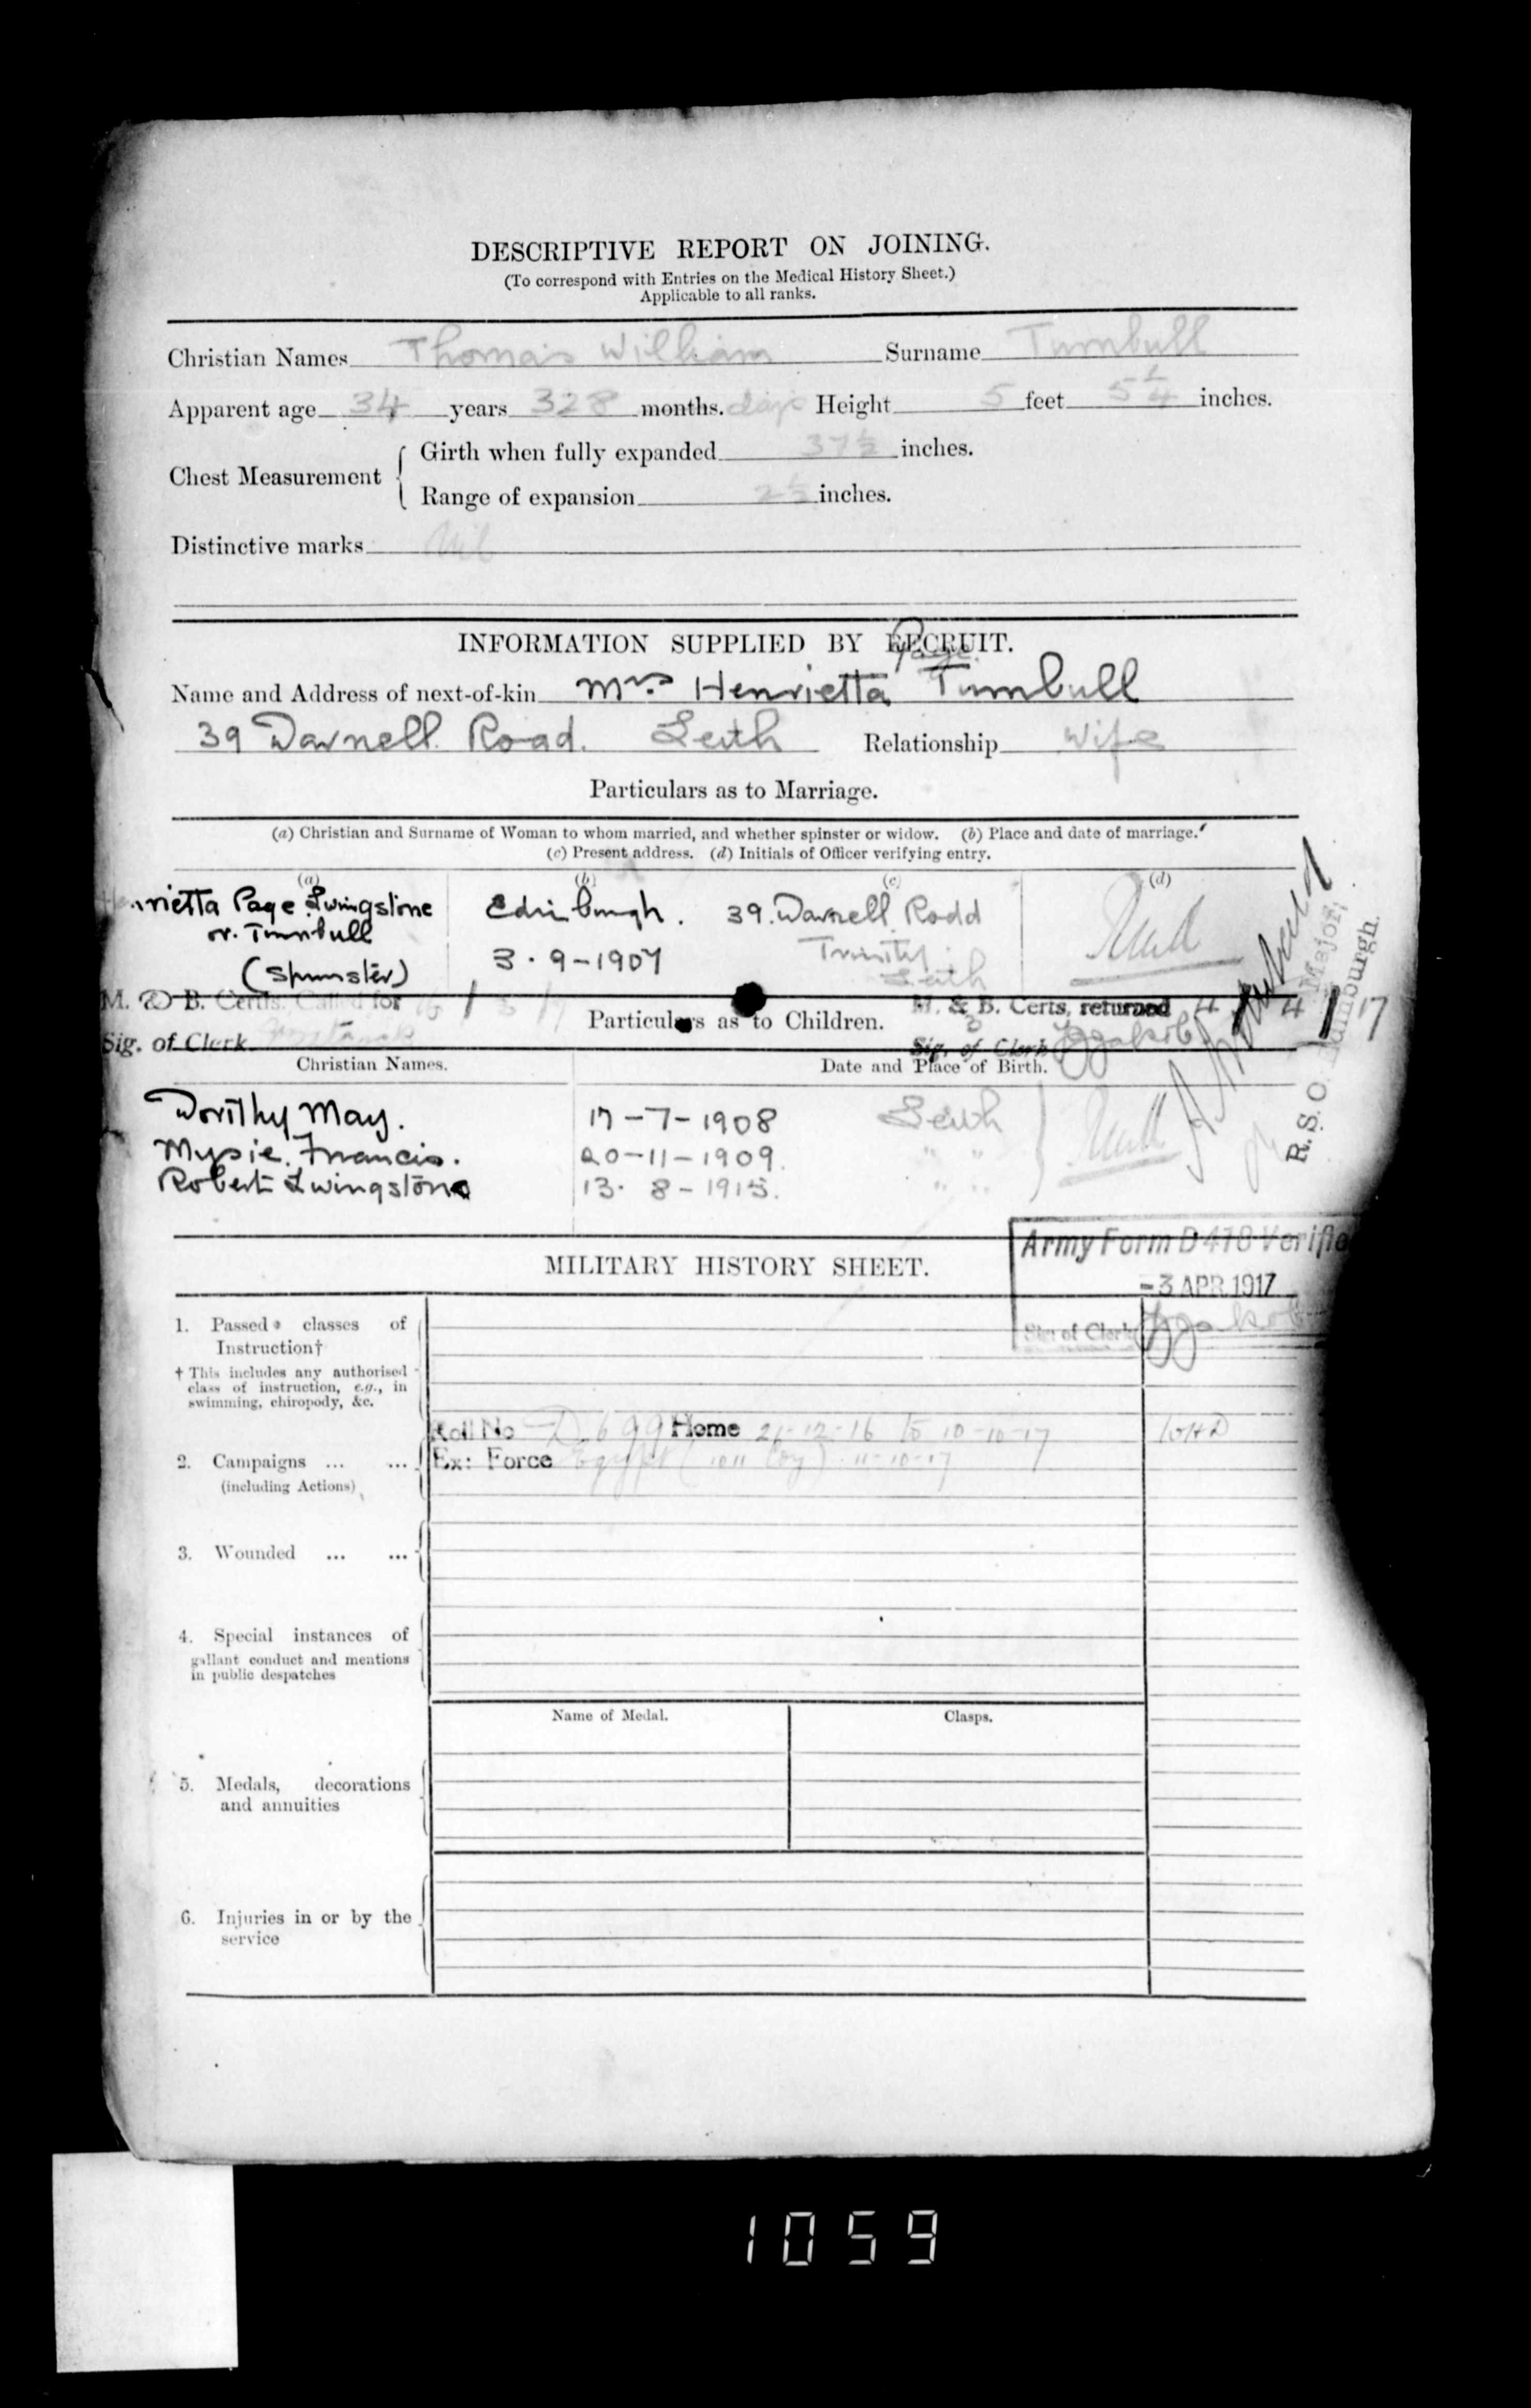 DESCRIPTIVE REPORT ON JOINING.
(To correspond with Entries on the Medical History Sheet.)
Applicable to all ranks.
Christian Names Thomas William Surname Turnbull
Apparent age 34 years 328 months. days Height 5 feet 5 1/4 inches.
Chest Measurement { Girth when fully expanded 37 1/2 inches.
Range of expansion 2 1/2 inches.
Distinctive marks Nil
INFORMATION SUPPLIED BY RECRUIT.
Page
Name and Address of next-of-kin Mrs Henrietta Turnbull
39 Darnell Road. Leith Relationship Wife
Particulars as to Marriage.
(a) Christian and Surname of Woman to whom married, and whether spinster or widow. (b) Place and date of marriage.
(c) Present address. (d) Initials of Officer verifying entry.
(a) (b) (c) (d)
rrietta Page Livingstone Edinburgh. 39. Darnell Road
or. Turnbull Trinity
(Spinster) 3.9-1907 Leith
M. & B. Certs. Called for M. & B. Certs. returned 4 4 17
Particulars as to Children.
Sig. of Clerk Sig. of Clerk
Christian Names. Date and Place of Birth.
Major,
R.S.O. Edinburgh.
Dorithy May. 17-7-1908 Leith
Mysie. Francis. 20-11-1909. " "
Robert Livingstone 13. 8-1915. " "
Army Form D 418 Verifie
MILITARY HISTORY SHEET.
-3 APR 1917
Sig of Clerk
1. Passed classes of
Instruction†
† This includes any authorised
class of instruction, e.g., in
swimming, chiropody, &c.
Roll No D 699 Home 21-12-16 to 10-10-17
Ex: Force Egypt (1011 Coy) 11-10-17
2. Campaigns ... ...
(including Actions)
3. Wounded ... ...
4. Special instances of
gallant conduct and mentions
in public despatches
Name of Medal. Clasps.
5. Medals, decorations
and annuities
6. Injuries in or by the
service
1059